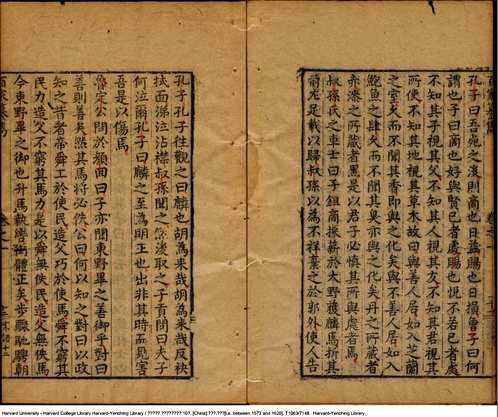 孔子曰吾死之後則商也日益賜也日損曾子曰何
謂也子曰商也好與賢己者處賜也悅不若己者處
不知其子視其父不知其人視其友不知其君視其
所使不知其地視其草木故曰與善人居如入芝蘭
之室久而不聞其香即與之化矣與不善人居如入
鮑魚之肆久而不聞其臭亦與之化矣丹之所藏者
赤漆之所藏者黑是以君子必慎其所與處者焉
叔孫氏之車士曰子鉏商採薪於大野獲麟焉折其
前左足載以歸叔孫以為不祥棄之於郭外使人告
孔子孔子往觀之曰麟也胡為來哉胡為來哉反袂
拭面涕泣沾襟叔孫聞之然後取之子貢問曰夫子
何泣爾孔子曰麟之至為明王也出非其時而見害
吾是以傷焉
魯定公問於顏回曰子亦聞東野畢之善御乎對曰
善則善矣然其馬將必佚公曰何以知之對曰以政
知之昔者帝舜工於使民造父巧於使馬舜不窮其
民力造父不窮其馬力是以舜無佚民造父無佚馬
今東野畢之御也升馬執轡銜體正矣步驟馳騁朝
Harvard University - Harvard College Library Harvard-Yenching Library / ?????.????????:107. [China]:???,???[i.e. between 1573 and 1620]. T1063/7148. Harvard-Yenching Library.